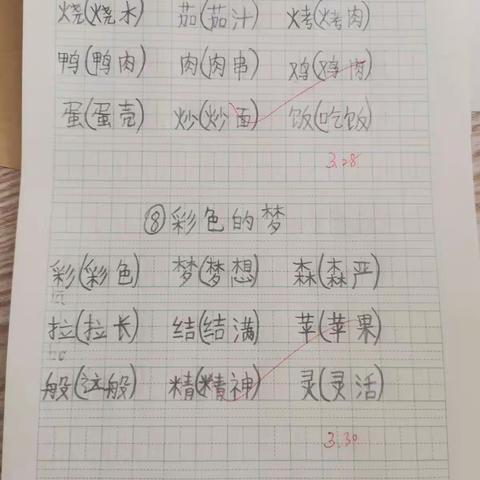 烧(烧水) 茄(茄汁) 烤(烤肉)
鸭(鸭肉) 肉(肉串) 鸡(鸡肉)
蛋(蛋壳) 炒(炒面) 饭(吃饭)
3.28
⑧彩色的梦
彩(彩色) 梦(梦想) 森(森严)
拉(拉长) 结(结满) 苹(苹果)
般(这般) 精(精神) 灵(灵活)
3.30